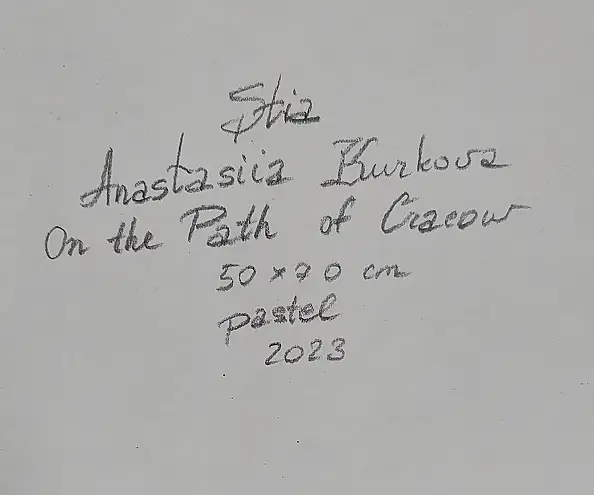 Stia
Anastasiia Kurkova
On the Path of Cracow
50 x 70 cm
pastel
2023